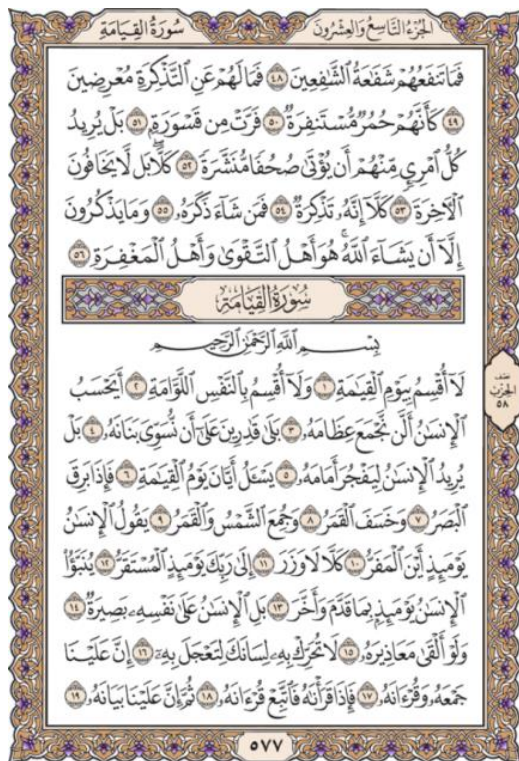 سُورَةُ القِيَامَةِ
الجُزءُ التَّاسِعُ وَالعِشْرُونَ
فَمَا تَنفَعُهُمْ شَفَٰعَةُ ٱلشَّٰفِعِينَ ٤٨ فَمَا لَهُمْ عَنِ ٱلتَّذْكِرَةِ مُعْرِضِينَ
٤٩ كَأَنَّهُمْ حُمُرٌ مُّسْتَنفِرَةٌ ٥٠ فَرَّتْ مِن قَسْوَرَةِۭ ٥١ بَلْ يُرِيدُ
كُلُّ ٱمْرِئٍ مِّنْهُمْ أَن يُؤْتَىٰ صُحُفًا مُّنَشَّرَةً ٥٢ كَلَّا ۖ بَل لَّا يَخَافُونَ
ٱلْءَاخِرَةَ ٥٣ كَلَّآ إِنَّهُۥ تَذْكِرَةٌ ٥٤ فَمَن شَآءَ ذَكَرَهُۥ ٥٥ وَمَا يَذْكُرُونَ
إِلَّآ أَن يَشَآءَ ٱللَّهُ ۚ هُوَ أَهْلُ ٱلتَّقْوَىٰ وَأَهْلُ ٱلْمَغْفِرَةِ ٥٦
سُورَةُ القِيَامَةِ
بِسْمِ ٱللَّهِ ٱلرَّحْمَٰنِ ٱلرَّحِيمِ
لَآ أُقْسِمُ بِيَوْمِ ٱلْقِيَٰمَةِ ١ وَلَآ أُقْسِمُ بِٱلنَّفْسِ ٱللَّوَّامَةِ ٢ أَيَحْسَبُ
ٱلْإِنسَٰنُ أَلَّن نَّجْمَعَ عِظَامَهُۥ ٣ بَلَىٰ قَٰدِرِينَ عَلَىٰٓ أَن نُّسَوِّىَ بَنَانَهُۥ ٤ بَلْ
يُرِيدُ ٱلْإِنسَٰنُ لِيَفْجُرَ أَمَامَهُۥ ٥ يَسْـَٔلُ أَيَّانَ يَوْمُ ٱلْقِيَٰمَةِ ٦ فَإِذَا بَرِقَ
ٱلْبَصَرُ ٧ وَخَسَفَ ٱلْقَمَرُ ٨ وَجُمِعَ ٱلشَّمْسُ وَٱلْقَمَرُ ٩ يَقُولُ ٱلْإِنسَٰنُ
يَوْمَئِذٍ أَيْنَ ٱلْمَفَرُّ ١٠ كَلَّا لَا وَزَرَ ١١ إِلَىٰ رَبِّكَ يَوْمَئِذٍ ٱلْمُسْتَقَرُّ ١٢ يُنَبَّؤُا۟
ٱلْإِنسَٰنُ يَوْمَئِذٍۭ بِمَا قَدَّمَ وَأَخَّرَ ١٣ بَلِ ٱلْإِنسَٰنُ عَلَىٰ نَفْسِهِۦ بَصِيرَةٌ ١٤
وَلَوْ أَلْقَىٰ مَعَاذِيرَهُۥ ١٥ لَا تُحَرِّكْ بِهِۦ لِسَانَكَ لِتَعْجَلَ بِهِۦٓ ١٦ إِنَّ عَلَيْنَا
جَمْعَهُۥ وَقُرْءَانَهُۥ ١٧ فَإِذَا قَرَأْنَٰهُ فَٱتَّبِعْ قُرْءَانَهُۥ ١٨ ثُمَّ إِنَّ عَلَيْنَا بَيَانَهُۥ ١٩
نصف
الحزب
٥٨
٥٧٧